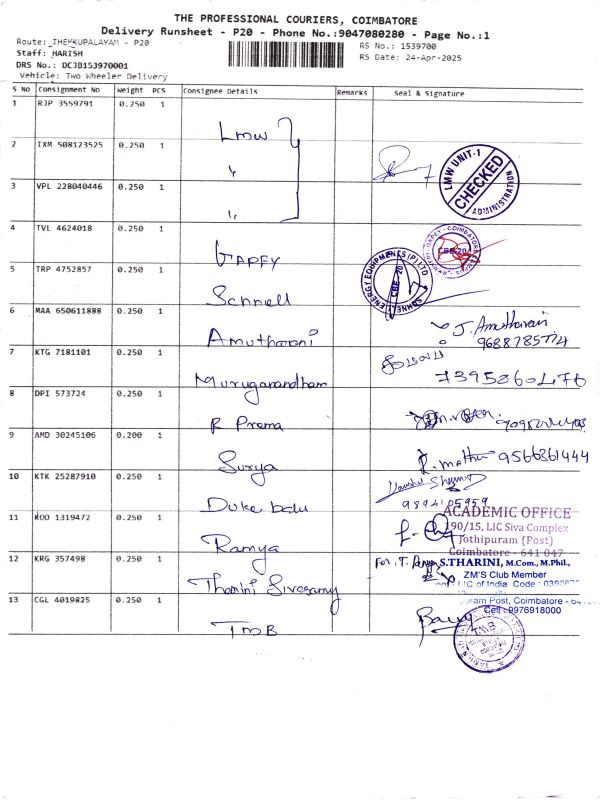 THE PROFESSIONAL COURIERS, COIMBATORE
Delivery Runsheet - P20 - Phone No.:9047080280 - Page No.:1
Route: THEKKUPALAYAM - P20
Staff: HARISH
DRS No.: DCJB153970001
Vehicle: Two Wheeler Delivery
RS No.: 1539700
RS Date: 24-Apr-2025
S No Consignment No Weight PCS Consignee Details Remarks Seal & Signature
1 RJP 3559791 0.250 1 LMW
2 IXM 508123525 0.250 1 "
LMW UNIT-1 CHECKED ADMINISTRATION
3 VPL 228040446 0.250 1 "
4 TVL 4624018 0.250 1 GAPEY
CBE-20
5 TRP 4752857 0.250 1 Schnell
SCHNELL ENERGY EQUIPMENTS (P) LTD CBE-20
6 MAA 650611888 0.250 1 Amutharani
J. Amutharani
9688785774
7 KTG 7181101 0.250 1 Muruganandham
7395860476
8 DPI 573724 0.250 1 R Prema
9 AMD 30245106 0.200 1 Surya
9566261444
10 KTK 25287910 0.250 1 Duke balu
9894105959
11 KOD 1319472 0.250 1 Ramya
ACADEMIC OFFICE
190/15, LIC Siva Complex
Jothipuram (Post)
Coimbatore - 641 047
12 KRG 357498 0.250 1 Tharini Sivasamy
For. T.
S.THARINI, M.Com., M.Phil.,
ZM'S Club Member
LIC of India Code :
puram Post, Coimbatore -
Cell: 9976918000
13 CGL 4019825 0.250 1 TMB